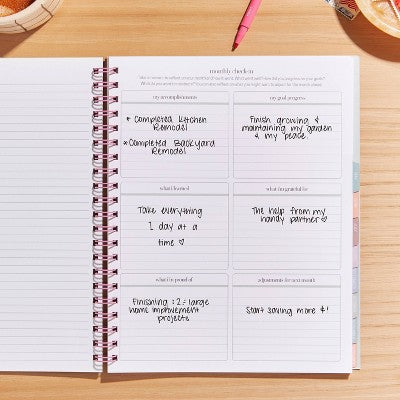 monthly check-in
my accomplishments
* Completed kitchen
Remodel
* Completed Backyard
Remodel
my goal progress
Finish growing &
maintaining my garden
& my peace
what i learned
Take everything
1 day at a
time ♡
what i'm grateful for
The help from my
handy partner ♡
what i'm proud of
Finishing :2: large
home improvement
projects
adjustments for next month
Start saving more $!